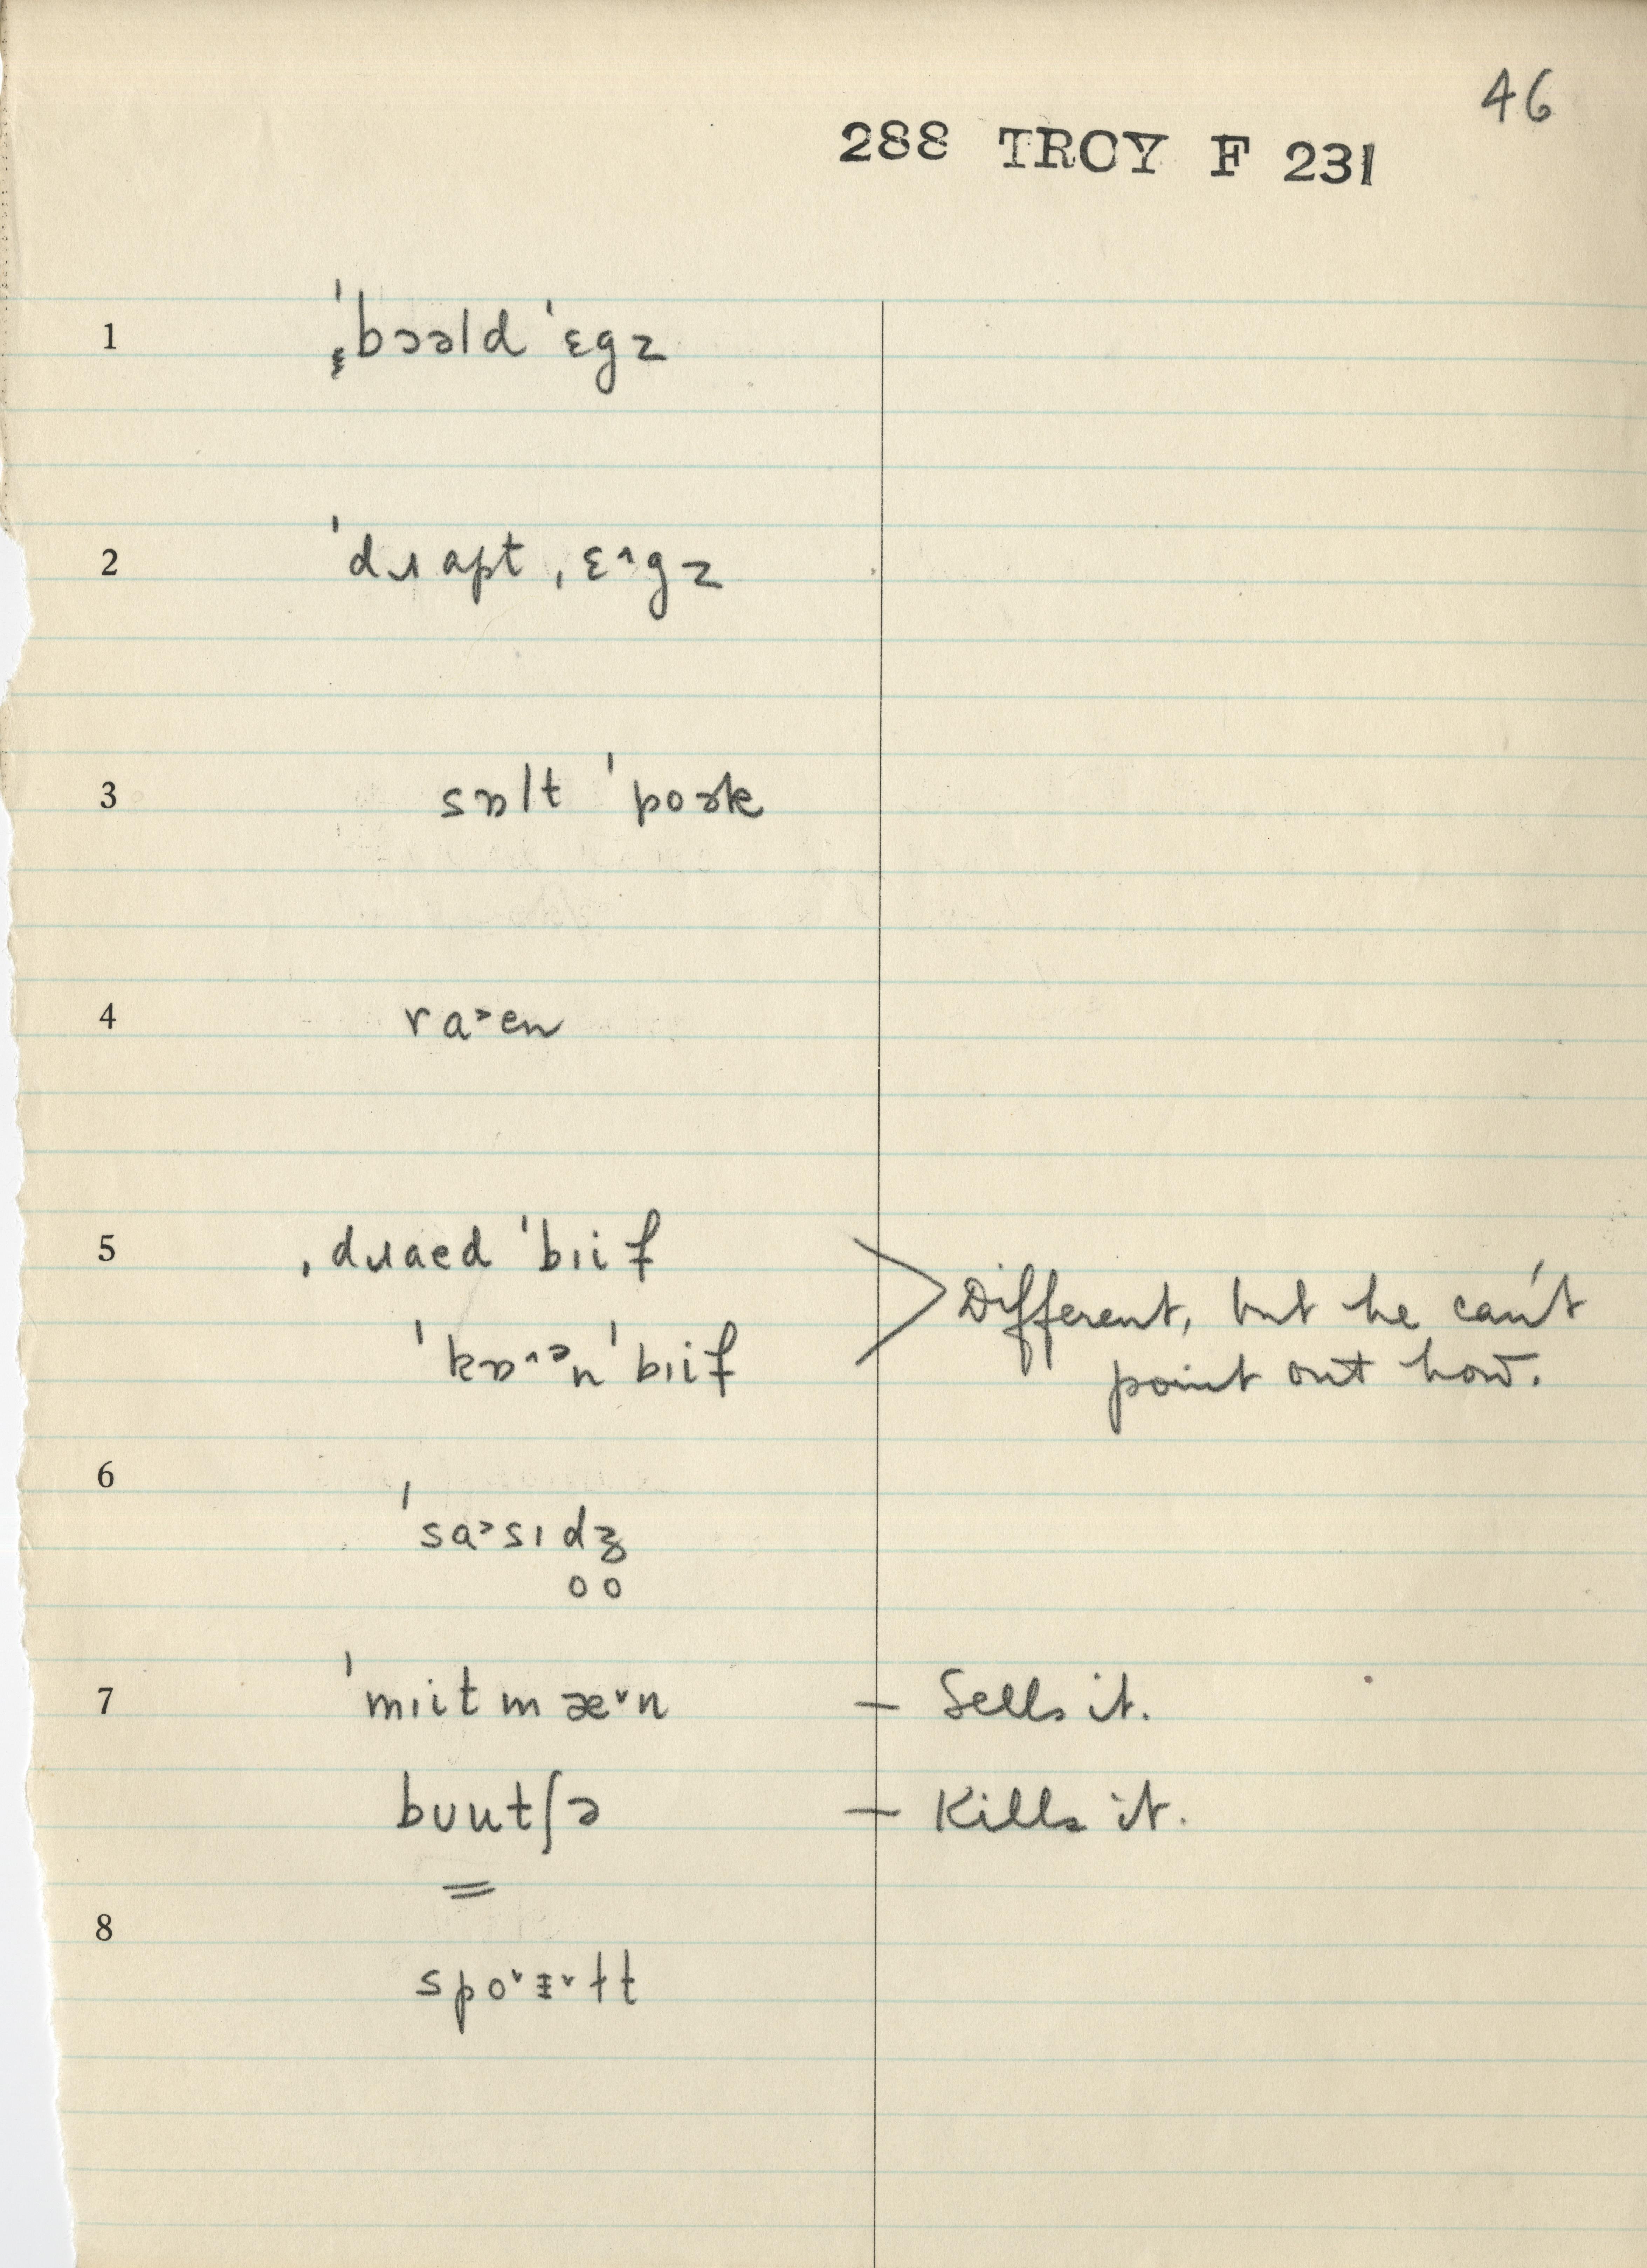 46
288 TROY F 231
1 ˈbɔəld ˈɛgz
2 ˈdɹɑpt ˌɛ˄gz
3 sɒlt ˈpoɚk
4 ra˃en
5 ˌdɹaed ˈbɪif
ˈkɒ˄ᵊn ˈbɪif
Different, but he can't
point out how.
6 ˈsa˃sɪd̥ʒ̊
7 ˈmɪitmæ˅n – Sells it.
bʊutʃə – Kills it.
8 spo˅ᵻ˅ɫt